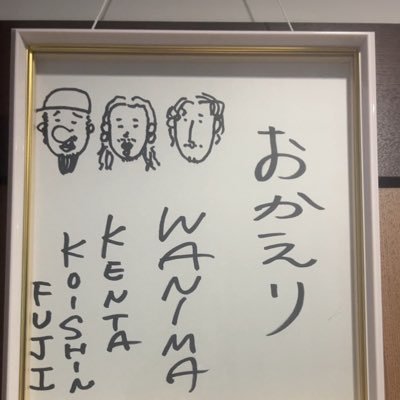 おかえり
WANIMA
KENTA
KOISHIN
FUJI